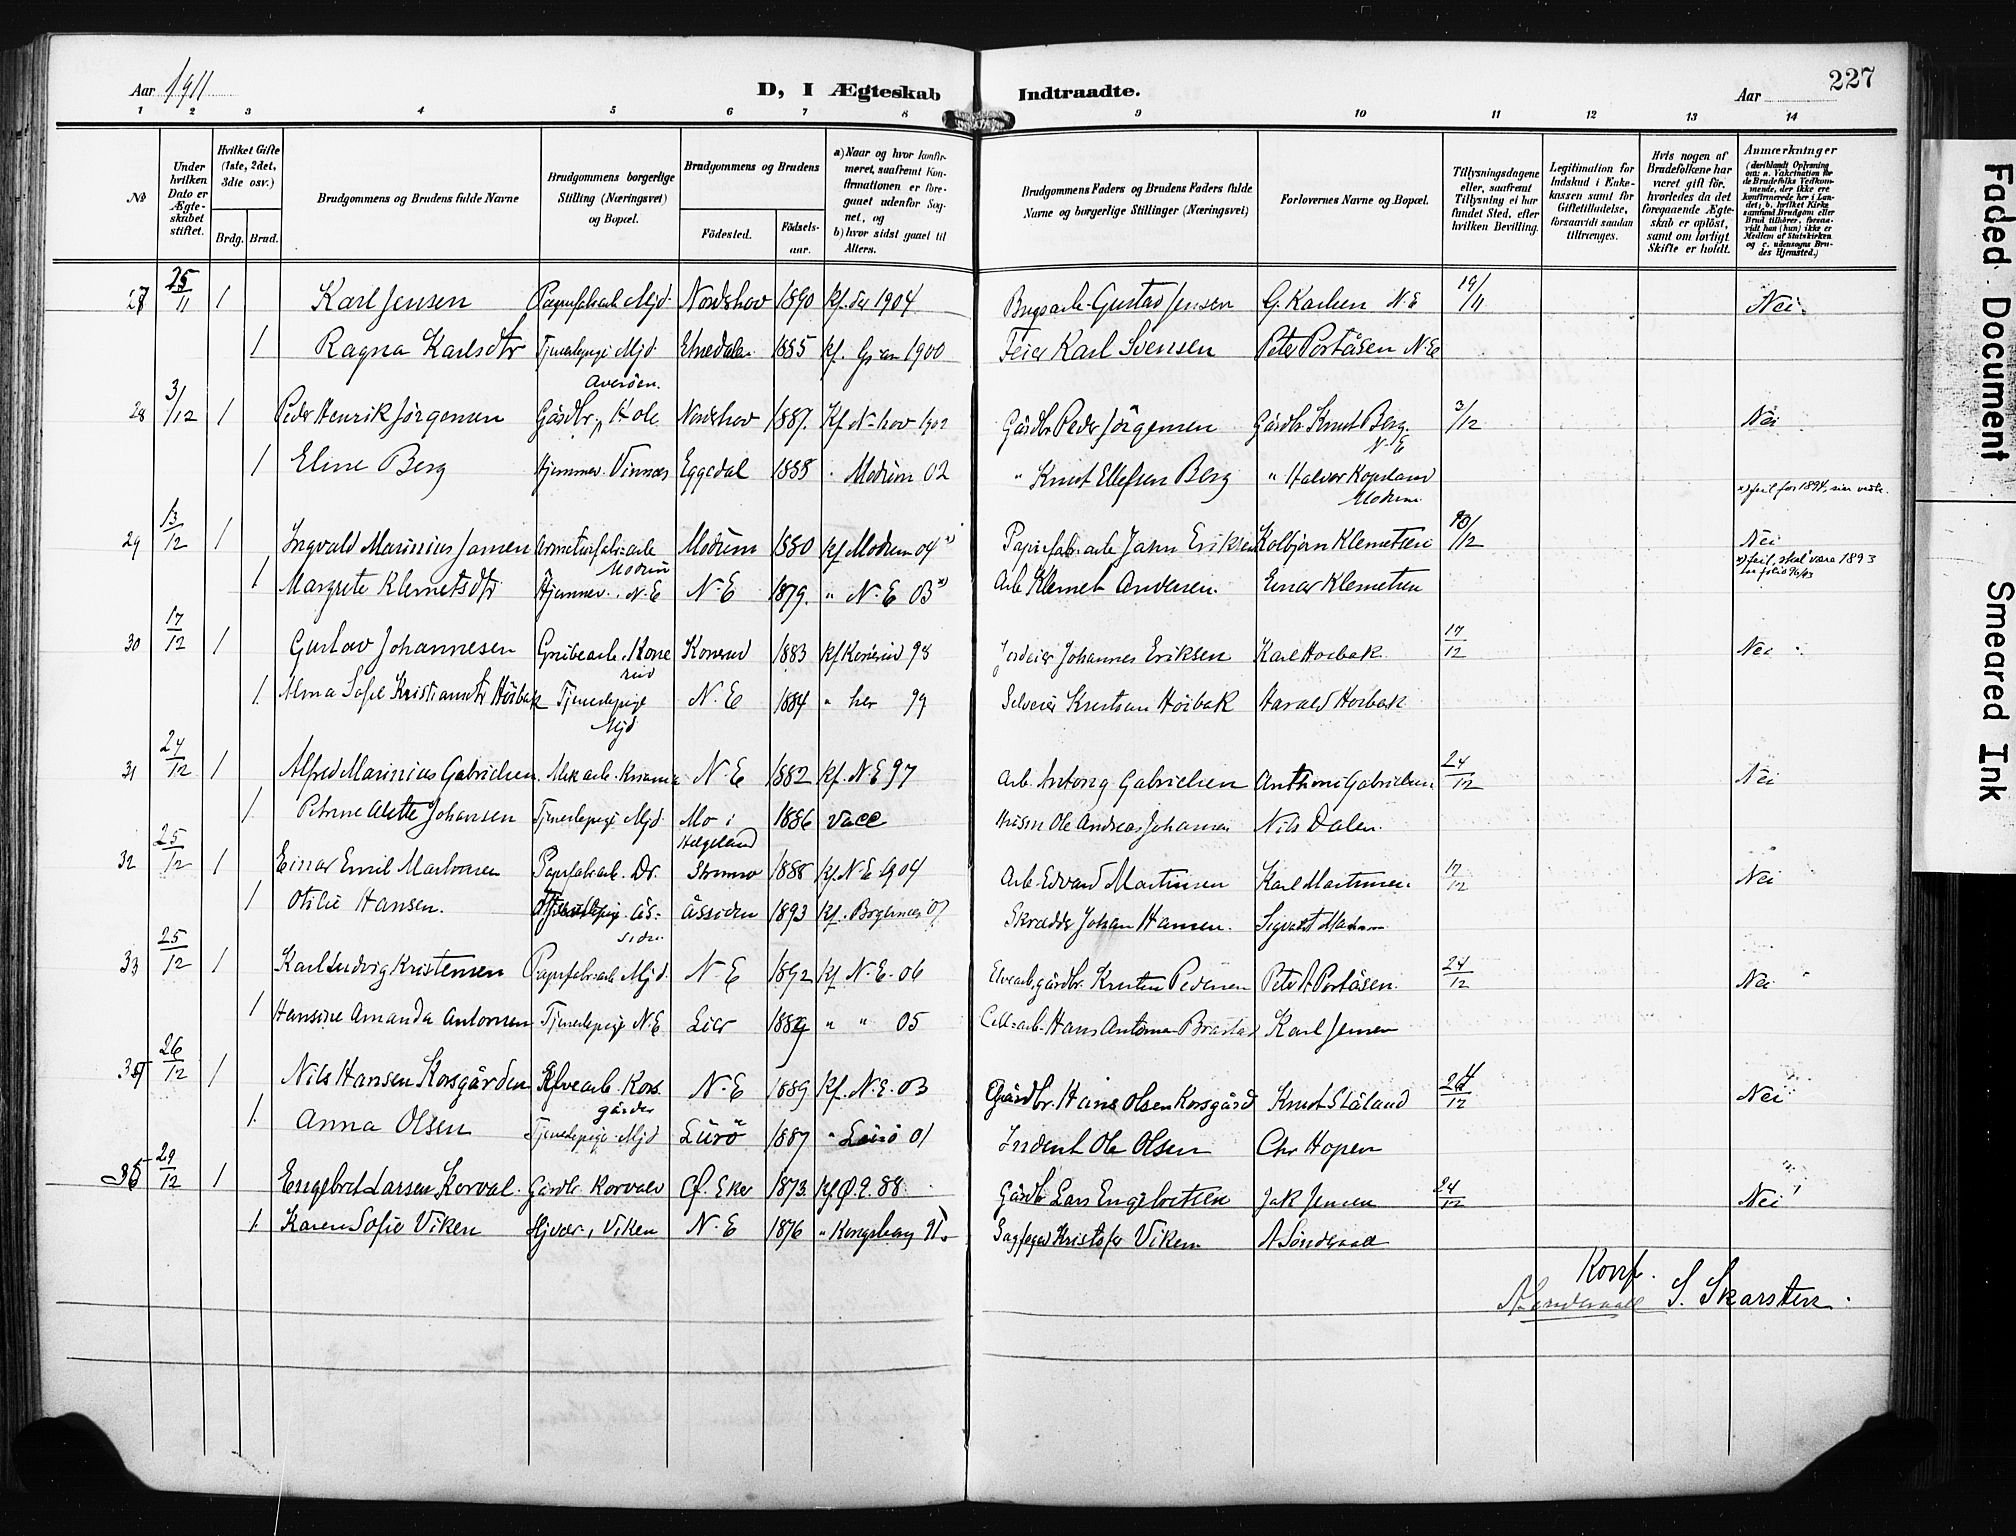 227
Aar 1911 D, I Ægteskab Indtraadte. Aar
1 2 3 4 5 6 7 8 9 10 11 12 13 14
No
Under hvilken Dato er Ægteskabet stiftet.
Hvilket Gifte (1ste, 2det, 3die osv.)
Brdg. Brud.
Brudgommens og Brudens fulde Navne
Brudgommens borgerlige Stilling (Næringsvei) og Bopæl.
Brudgommens og Brudens
Fødested. Fødselsaar.
a) Naar og hvor konfirmeret, saafremt Konfirmationen er foregaaet udenfor Sognet, og
b) hvor sidst gaaet til Alters.
Brudgommens Faders og Brudens Faders fulde Navne og borgerlige Stillinger (Næringsvei)
Forlovernes Navne og Bopæl.
Tillysningsdagene eller, saafremt Tillysning ei har fundet Sted, efter hvilken Bevilling.
Legitimation for Indskud i Enkekassen samt for Giftetilladelse, forsaavidt saadan tiltrænges.
Hvis nogen af Brudefolkene har været gift før, hvorledes da det foregaaende Ægteskab er opløst, samt om lovligt Skifte er holdt.
Anmærkninger
27 25/11 1 Karl Jensen Papirfabarb. Mjd. Nordshov 1890 Kf. 1904 Gustav Jensen G. Karlsen N. E 19/11 Nei.
1 Ragna Karlsdtr Tjenestepige Mjd Etnedalen 1885 Kf. Gran 1900 Feier Karl Svensen Peter Portåsen N. E
28 3/12 1 Peder Henrik Jörgensen Gårdbr. Averöen. Hole Nordrhov 1887. Kf. N-hov 1902 Gårdbr Peder Jörgensen Gårdbr. Knut Berg N. E 3/12 Nei
1 Eline Berg Hjemmev. Vinnæs Eggedal 1888 " Modum 02 " Knut Ellefsen Berg " Halvor Kopsland Modum
x) feil for 1894, 
29 13/12 1 Ingvald Marinius Jansen Armaturfab.arb. Modum Modum 1880 Kf. Modum 04 x) Papirfab.arb Jahn Eriksen Kolbjørn Klemetsen 10/12 Nei
x) feil, skal være 1893
1 Margrete Klemetsdtr Hjemmev. N. E N. E 1879. " N. E 03 x) Arb. Klemet Andersen. Einar Klemetsen
30 17/12 1 Gustav Johannesen Grubearb. Konnerud Konnerud 1883 Kf Konnerud 98 Johannes Eriksen Karl Hoibak 17/12 Nei
1 Alma Sofie Kristiansdtr Höibak Tjenestepige Mjd N. E 1884 " her 99 Selveier Kristian Höibak Harald Hoibak
31 24/12 1 Alfred Marinius Gabrielsen Mek arb. N. E 1882 Kf. N. E 97 Arb. Antony Gabrielsen Anthoni Gabrielsen 24/12 Nei
1 Petrine Alette Johansen Tjenestepige Mjd. Mo i Helgeland 1886 vacc Ole Andreas Johansen Nils Dalen.
32 25/12 1 Einar Emil Martinsen Papirfabrarb. Dr. Strømsø 1888 Kf. N. E 1904 Arb. Edvard Martinsen Karl Martinsen. 17/12 Nei
1 Otilie Hansen. Åssiden Åssiden 1893 Kf. Bragernæs 07 Skrædder Johan Hansen.
33 25/12 1 Karl Ludvig Kristensen Papirfabrarb Mjd. N. E 1892 Kf. N. E. 06 Elvearb., gårdbr. Kristen Pedersen Peter A Portåsen. 24/12 Nei
1 Hansine Amanda Antonsen Tjenestepige N. E Lier 1889 " " 05 Cell.arb. Hans Antonsen Karl Jensen
34 26/12 1 Nils Hansen Korsgården Elvearb. Korsgården N. E 1889 Kf. N. E. 03 Gårdbr. Hans Olsen Korsgård Knut Ståland 24/12 Nei
1. Anna Olsen Tjenestepige Mjd Lurö 1887 " Lurö 01 Inderst Ole Olsen Chr Hopen
35 29/12 1 Engebret Larsen Korvald. Gårdbr. Korvald Öf. Eker 1873. Kf Ö. E. 88. Gårdbr Lars Engebretsen Jak Jensen 24/12 Nei
1. Karen Sofie Viken Hjv. , Viken N. E 1876 " Kongsberg 91. Kristofer Viken A Sönderaal
Konf.
S. Skarsten.
Faded Document
Smeared Ink